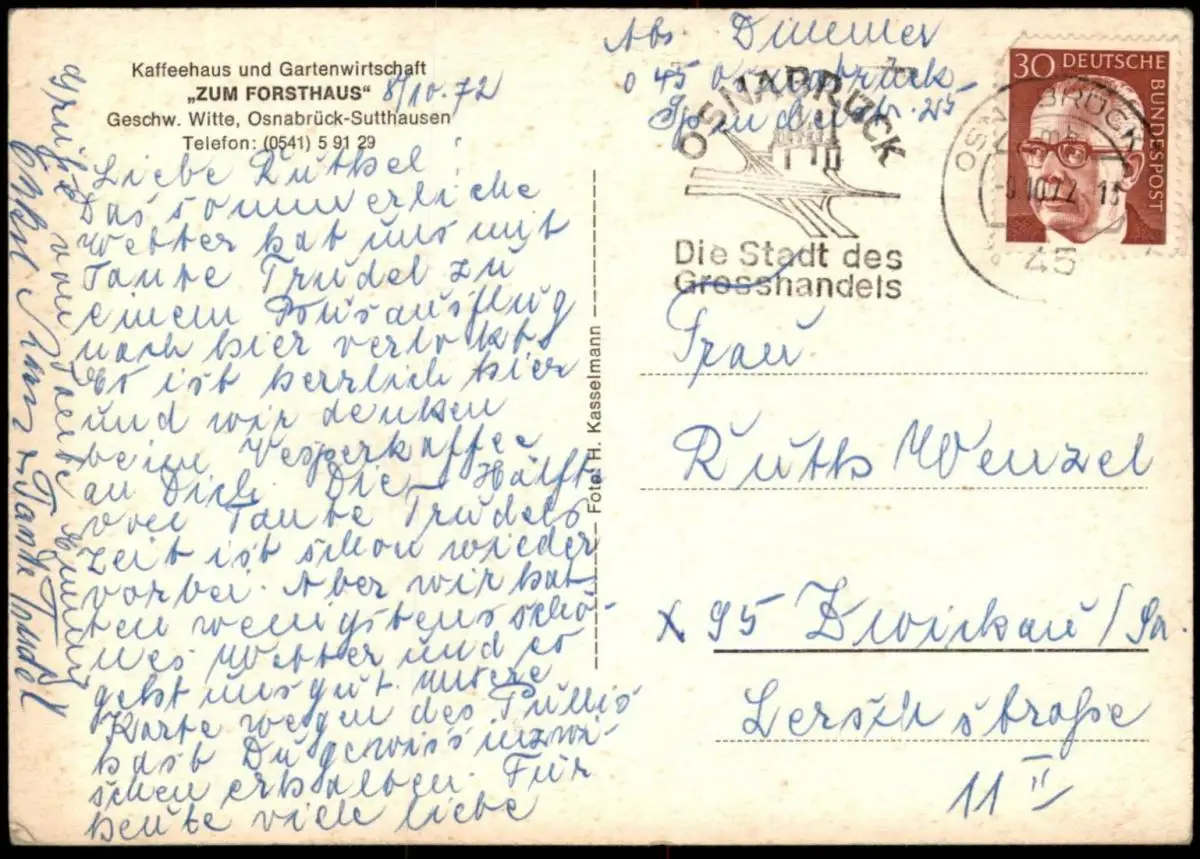 Kaffeehaus und Gartenwirtschaft
„ZUM FORSTHAUS"
Geschw. Witte, Osnabrück-Sutthausen
Telefon: (0541) 5 91 29
8/10.72
Liebe Ruthel
Das sommerliche
Wetter hat uns mit
Tante Trudel zu
einem Ausflug
nach hier verlockt.
Es ist herrlich hier
und wir denken
beim Vesperkaffee
an Dich. Die Hälfte
von Tante Trudels
Zeit ist schon wieder
vorbei. Aber wir hat-
ten wenigstens schö-
nes Wetter und es
geht uns gut. Unsere
Karte wegen des Pullis
hast Du gewiss inzwi-
schen erhalten. Für
heute viele liebe
Grüße von Tante
Onkel u. Tante Trudel
Foto: H. Kasselmann
Abs. Dimmer
45 Osnabrück
Str. 25
OSNABRÜCK
Die Stadt des
Grosshandels
OSNABRÜCK
mb
10.72
45
30 DEUTSCHE
BUNDESPOST
Frau
Ruth Wenzel
X 95 Zwickau/Sa.
Lerschstraße
11 II